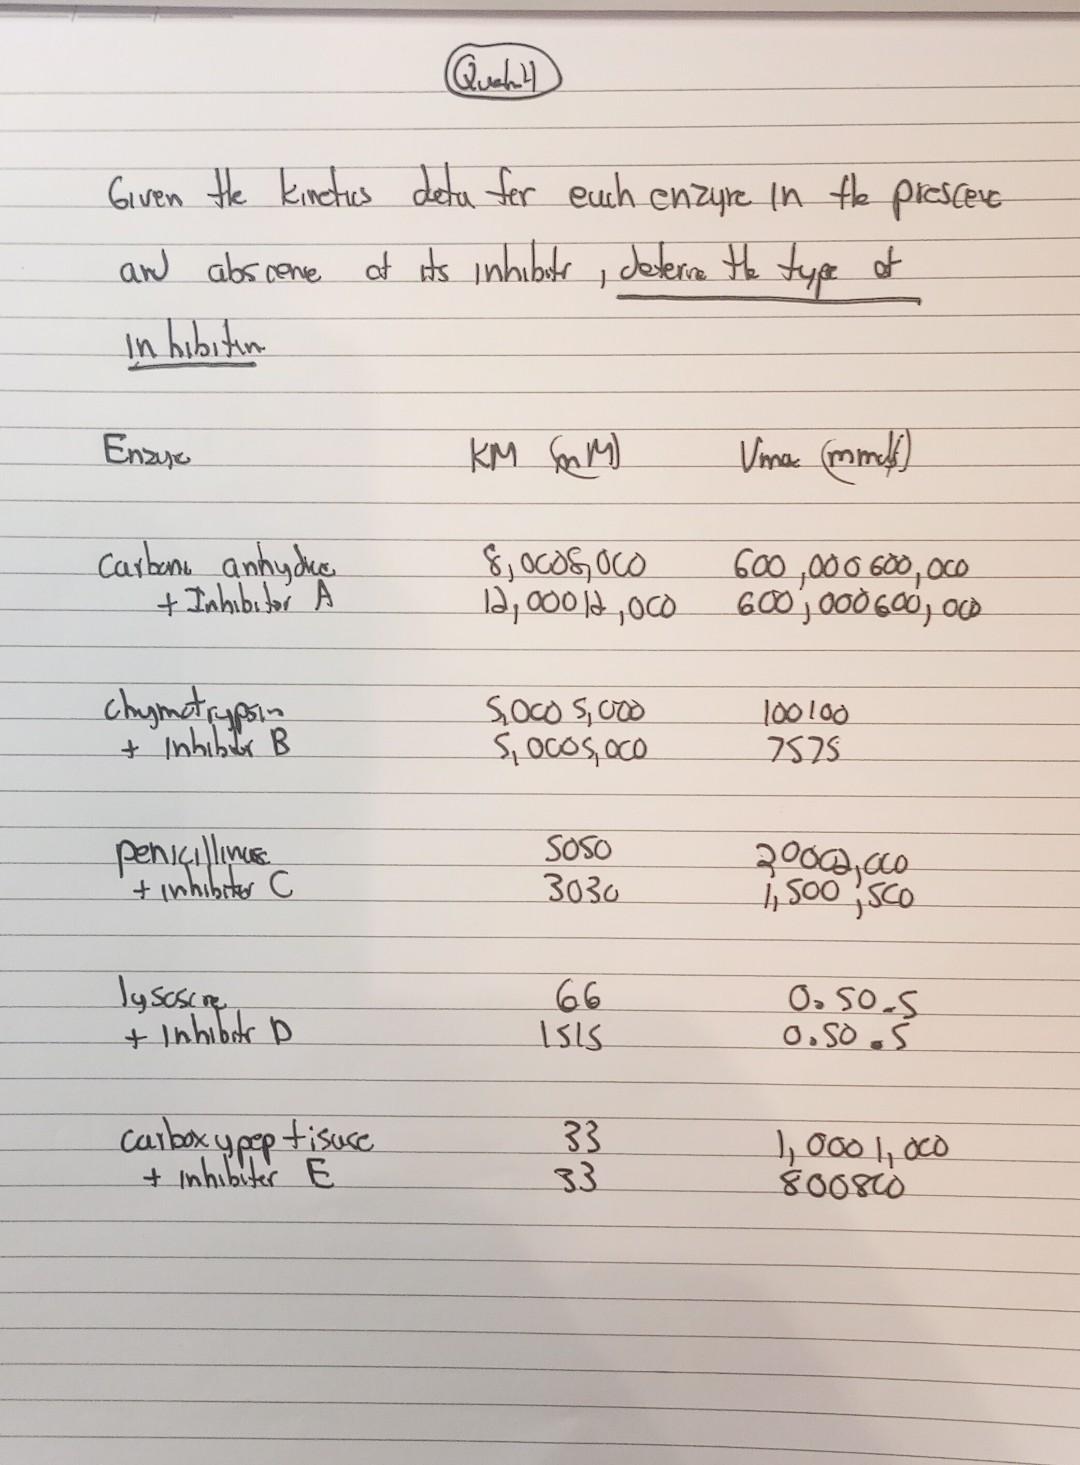 Question 4
Given the kinetics data for each enzyme in the presence
and abscence of its inhibitor, determine the type of
inhibition
Enzyme KM (mM) Vmax (mmol/s)
Carbonic anhydrase 8,0008,000 600,000600,000
+ Inhibitor A 12,00012,000 600,000600,000
Chymotrypsin 5,0005,000 100100
+ Inhibitor B 5,0005,000 7575
penicillinase 5050 20002,000
+ inhibitor C 3030 1,500,500
lysosome 66 0.50.5
+ Inhibitor D 1515 0.50.5
carboxypeptisase 33 1,0001,000
+ Inhibiter E 33 800800